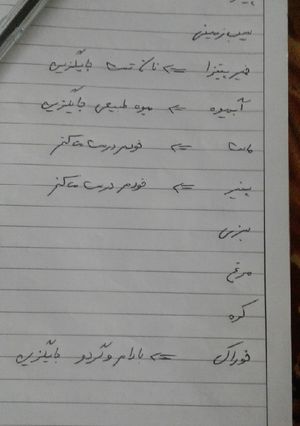 سیب زمینی
خمیر پیتزا ⇐ نان تست جایگزین
آبمیوه ⇐ میوه طبیعی جایگزین
ماست ⇐ خودم درست میکنم
پنیر ⇐ خودم درست میکنم
سبزی
مرغ
کره
خوراک ⇐ بادام و گردو جایگزین